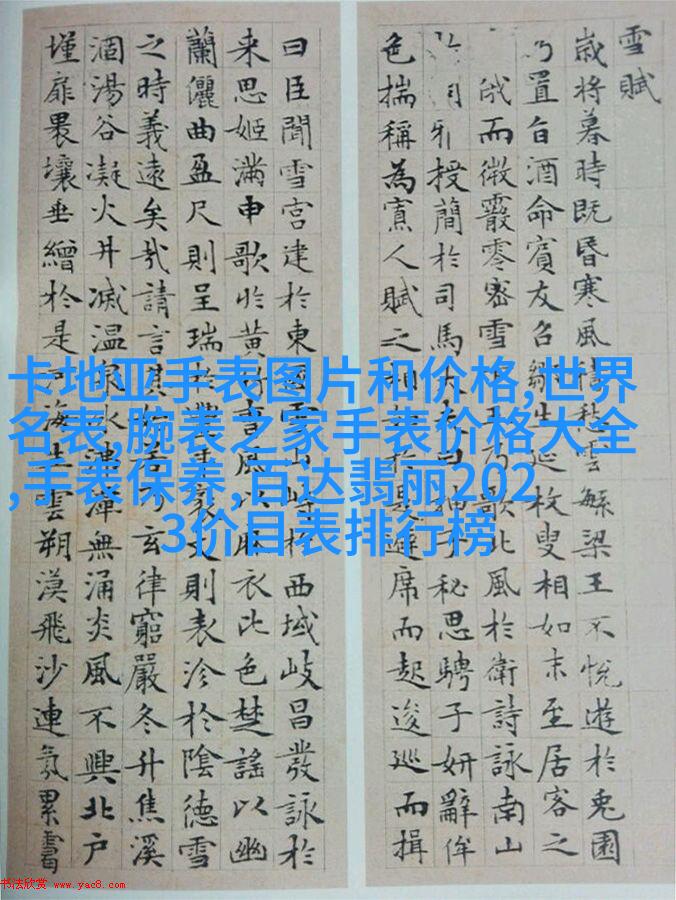 雪賦
歲將暮時既昏寒風積愁雲繁梁王不悅遊於兔園
乃置旨酒命賓友召鄒生延枚叟相如末至居客之
俄而微霰零密雪下王乃歌北風於衛詩詠南山
雅授簡於司馬大夫曰抽子秘思騁子妍辭侔
色揣稱為寡人賦之相於是避席而起逡巡而揖
曰臣聞雪宮建於東國雪山峙於西域岐昌發詠於
来思姬滿申歌於黃竹曹風以麻衣比色楚謠以幽
蘭儷曲盈尺則呈瑞於豐年袤丈則表沴於陰德雪
之時義遠矣哉請言其始若乃玄律窮嚴冬升焦溪
涸湯谷凝火井滅温泉冰沸潭無涌炎風不興北户
墐扉壤垂繒於是河海生雲朔漠飛沙連氛累靄
卡地亚手表图片和价格,世界
名表,腕表之家手表价格大全
,手表保养,百达翡丽202
3价目表排行榜
书法欣赏 www.yac8.com